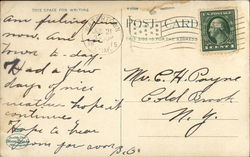 THIS SPACE FOR WRITING
POST CARD
am feeling
now. and
town to-day.
Had a few
days of nice
weather hope it
continues
Hope to hear
from you soon
Mr. C. H. Payne
Cold Brook
N. Y.